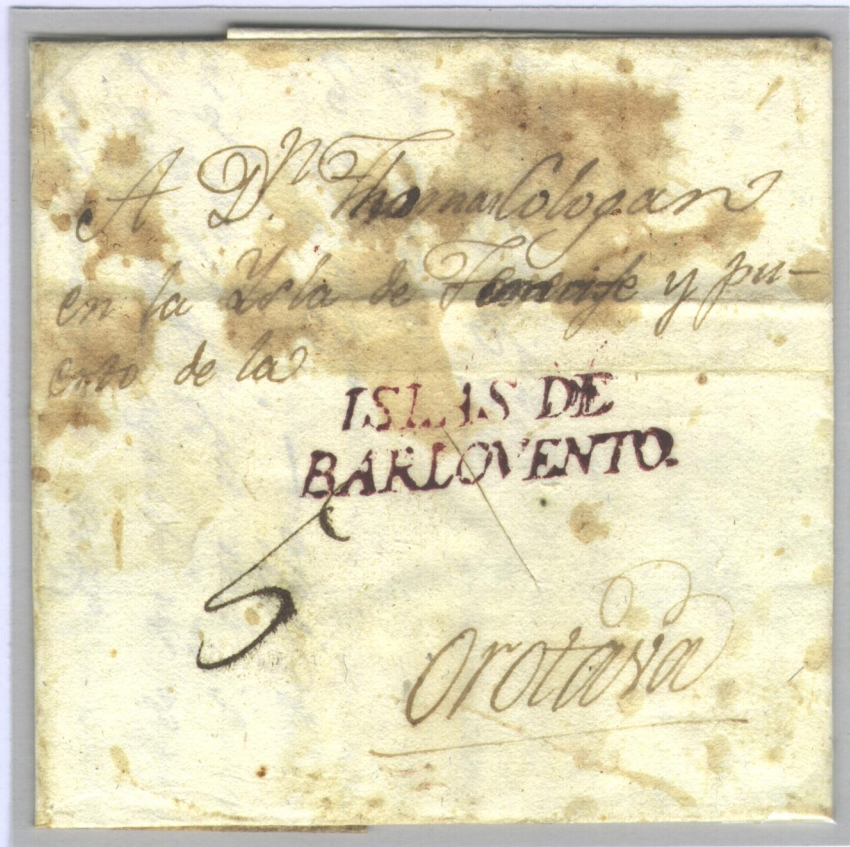 A Dn. Thomas Cologan
en la Ysla de Tenerife y pu-
erto de la
ISLAS DE
BARLOVENTO.
5
Orotava